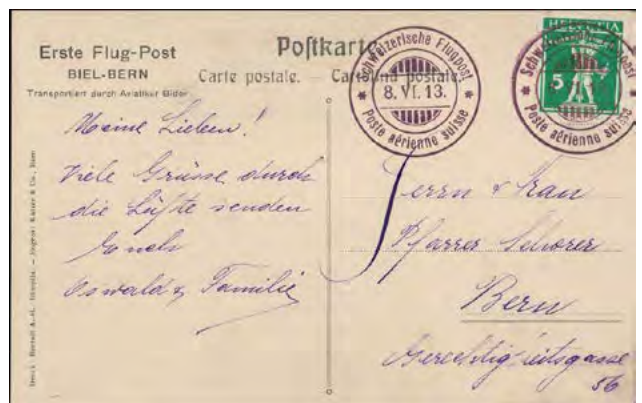 Erste Flug-Post
BIEL-BERN
Transportiert durch Aviatiker Bider
Postkarte
Carte postale. — Cartolina postale.
Schweizerische Flugpost
8. VI. 13.
Poste aérienne suisse
HELVETIA
5
Schweizerische Flugpost
Poste aérienne suisse
Meine Lieben!
Viele Grüsse durch
die Lüfte senden
Euch
Oswald & Familie
Herrn & Frau
Pfarrer Schorer
Bern
Gerechtigkeitsgasse
56